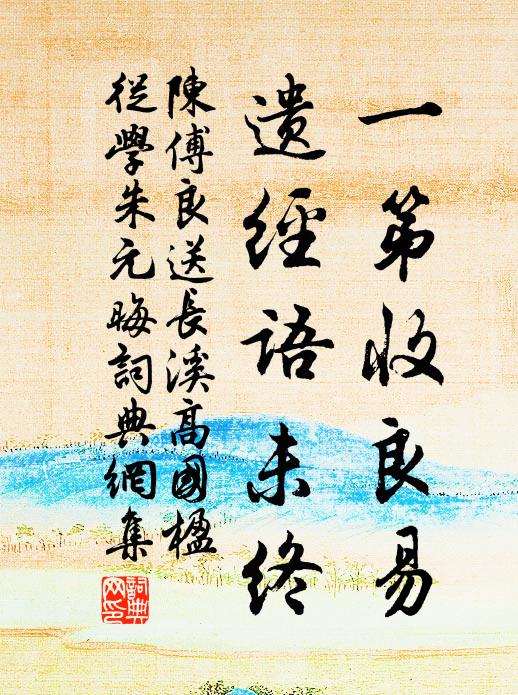 一第收良易
遗經語未終
陳傅良送長溪高國楹
從學朱元晦詞典網集